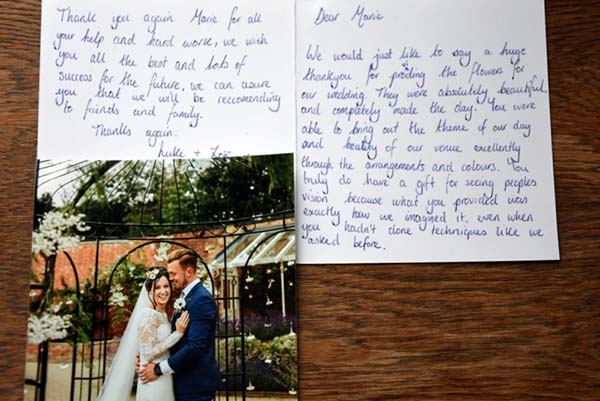 Dear Marie
We would just like to say a huge
thankyou for proding the flowers for
our wedding. They were absolutely beautiful
and completely made the day. You were
able to bring out the theme of our day
and beauty of our venue excellently
through the arrangements and colours. You
truly do have a gift for seeing peoples
vision because what you provided was
exactly how we imagined it, even when
you hadn't done techniques like we
asked before.
Thank you again Marie for all
your help and hard work, we wish
you all the best and lots of
success for the future, we can assure
you that we will be reccomending
to friends and family.
Thanks again.
Luke +